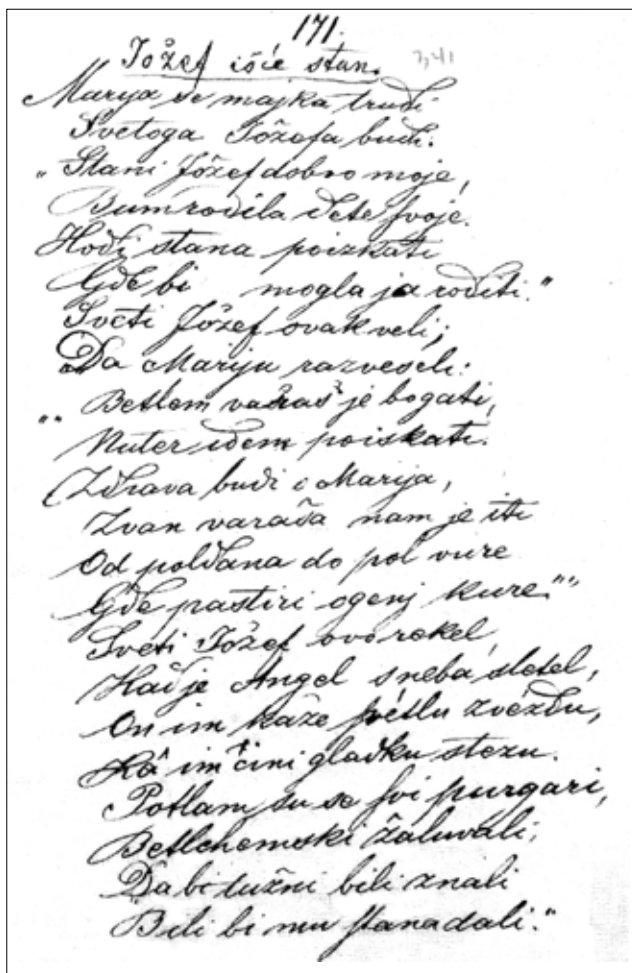 171.
Jožef išće stan. 7,41
Marija se majka trudi
Svetoga Jožefa budi.
„Stani Jožef dobro moje,
Bum rodila dete svoje.
Hodi stana poizkati
Gde bi mogla ja roditi."
Sveti Jožef ovak veli;
Da Mariju razveseli:
„„Betlem varaš je bogati,
Nuter idem poiskati.
Zdrava budi Marija,
Zvan varaša nam je iti
Od poldana do pol vure
Gde pastiri ogenj kure.""
Sveti Jožef ovo rekel,
Kad je Angel s neba sletel,
On im kaže svétlu zvézdu,
Kâ im čini gladku stezu.
Potlam su se svi purgari,
Betlehemski žaluvali;
Da bi tužni bili znali
Bili bi mu stana dali."